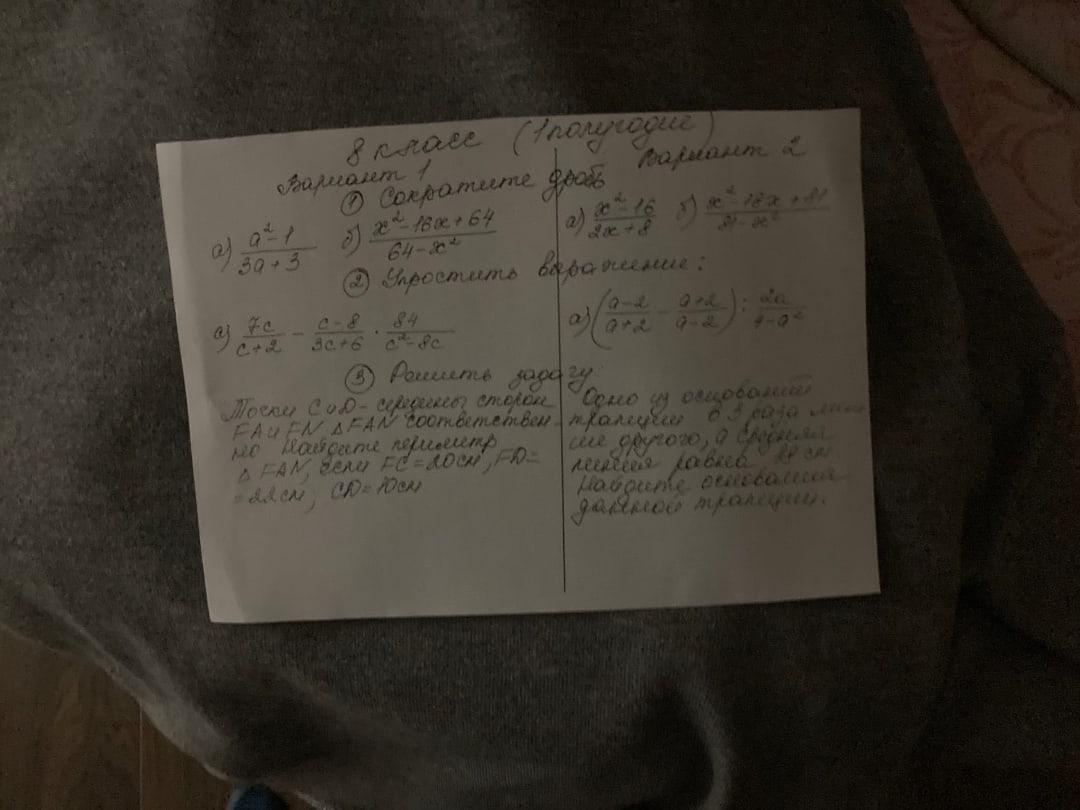 8 класс (1 полугодие)
Вариант 1
Вариант 2
① Сократите дробь
а) (a²-1)/(3a+3) б) (x²-16x+64)/(64-x²)
а) (x²-16)/(2x+8) б) (x²-18x+81)/(81-x²)
② Упростить выражение:
а) 7c/(c+2) - (c-8)/(3c+6) · 84/(c²-8c)
а) ((a-2)/(a+2) - (a+2)/(a-2)) : 2a/(4-a²)
③ Решить задачу:
Точки C и D - середины сторон
FA и FN △FAN соответствен-
но Найдите периметр
△ FAN, если FC = 20см, FD =
= 22см, CD = 10см
Одно из оснований
трапеции в 3 раза мень
ше другого, а средняя
линия равна см
Найдите основания
данной трапеции.